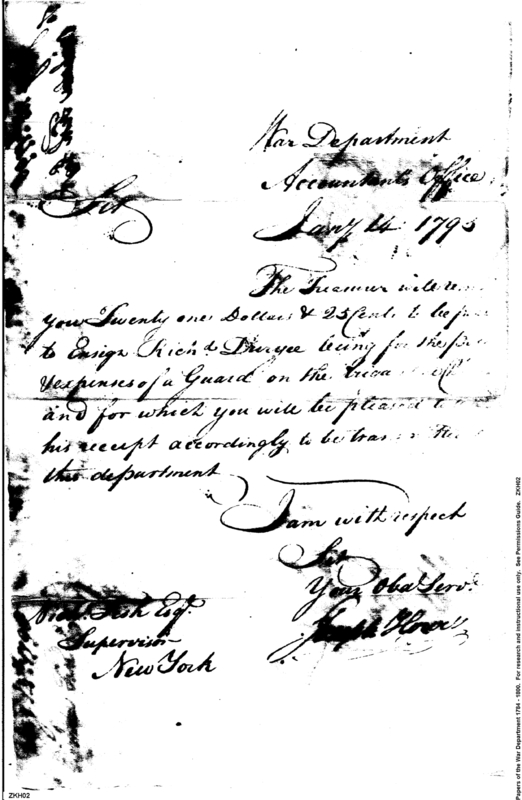 War Department
Accountants Office
Jany 14 1795
Sir
The Treasurer will
you Twenty one Dollars & 25 Cents to be
to Ensign Richd. Duryee being for the
& expenses of a Guard on the
and for which you will be pleased
his receipt accordingly to be
this department
I am with respect
Sir
Your Obdt Servt.
Joseph Howell
Fish Esqr.
Supervisor
New York
Papers of the War Department 1784 - 1800. For research and instructional use only. See Permissions Guide. ZKH02
ZKH02